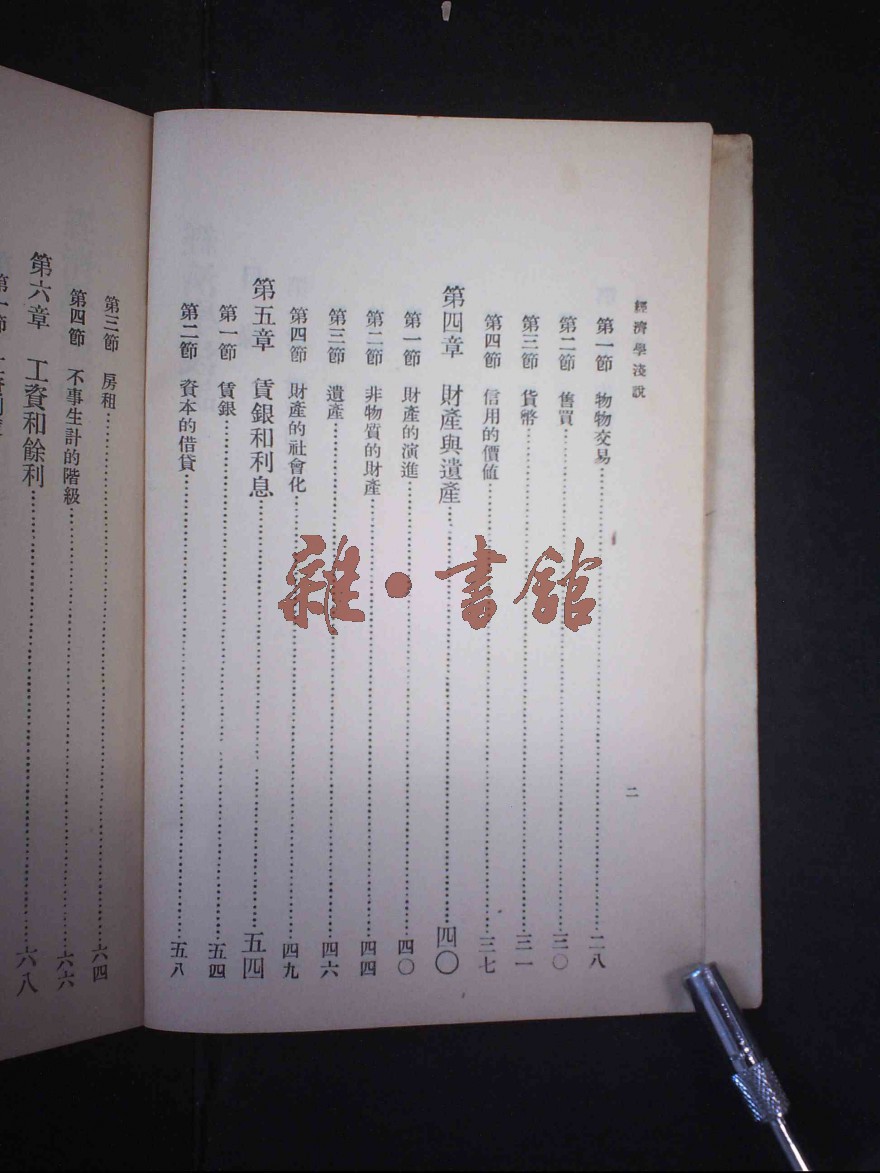 經濟學淺說
二
第一節 物物交易……二八
第二節 售買……三〇
第三節 貨幣……三一
第四節 信用的價值……三七
第四章 財產與遺產……四〇
第一節 財產的演進……四〇
第二節 非物質的財產……四四
第三節 遺產……四六
第四節 財產的社會化……四九
第五章 賃銀和利息……五四
第一節 賃銀……五四
第二節 資本的借貸……五八
第三節 房租……六四
第四節 不事生計的階級……六六
第六章 工資和餘利……六八
雜·書館